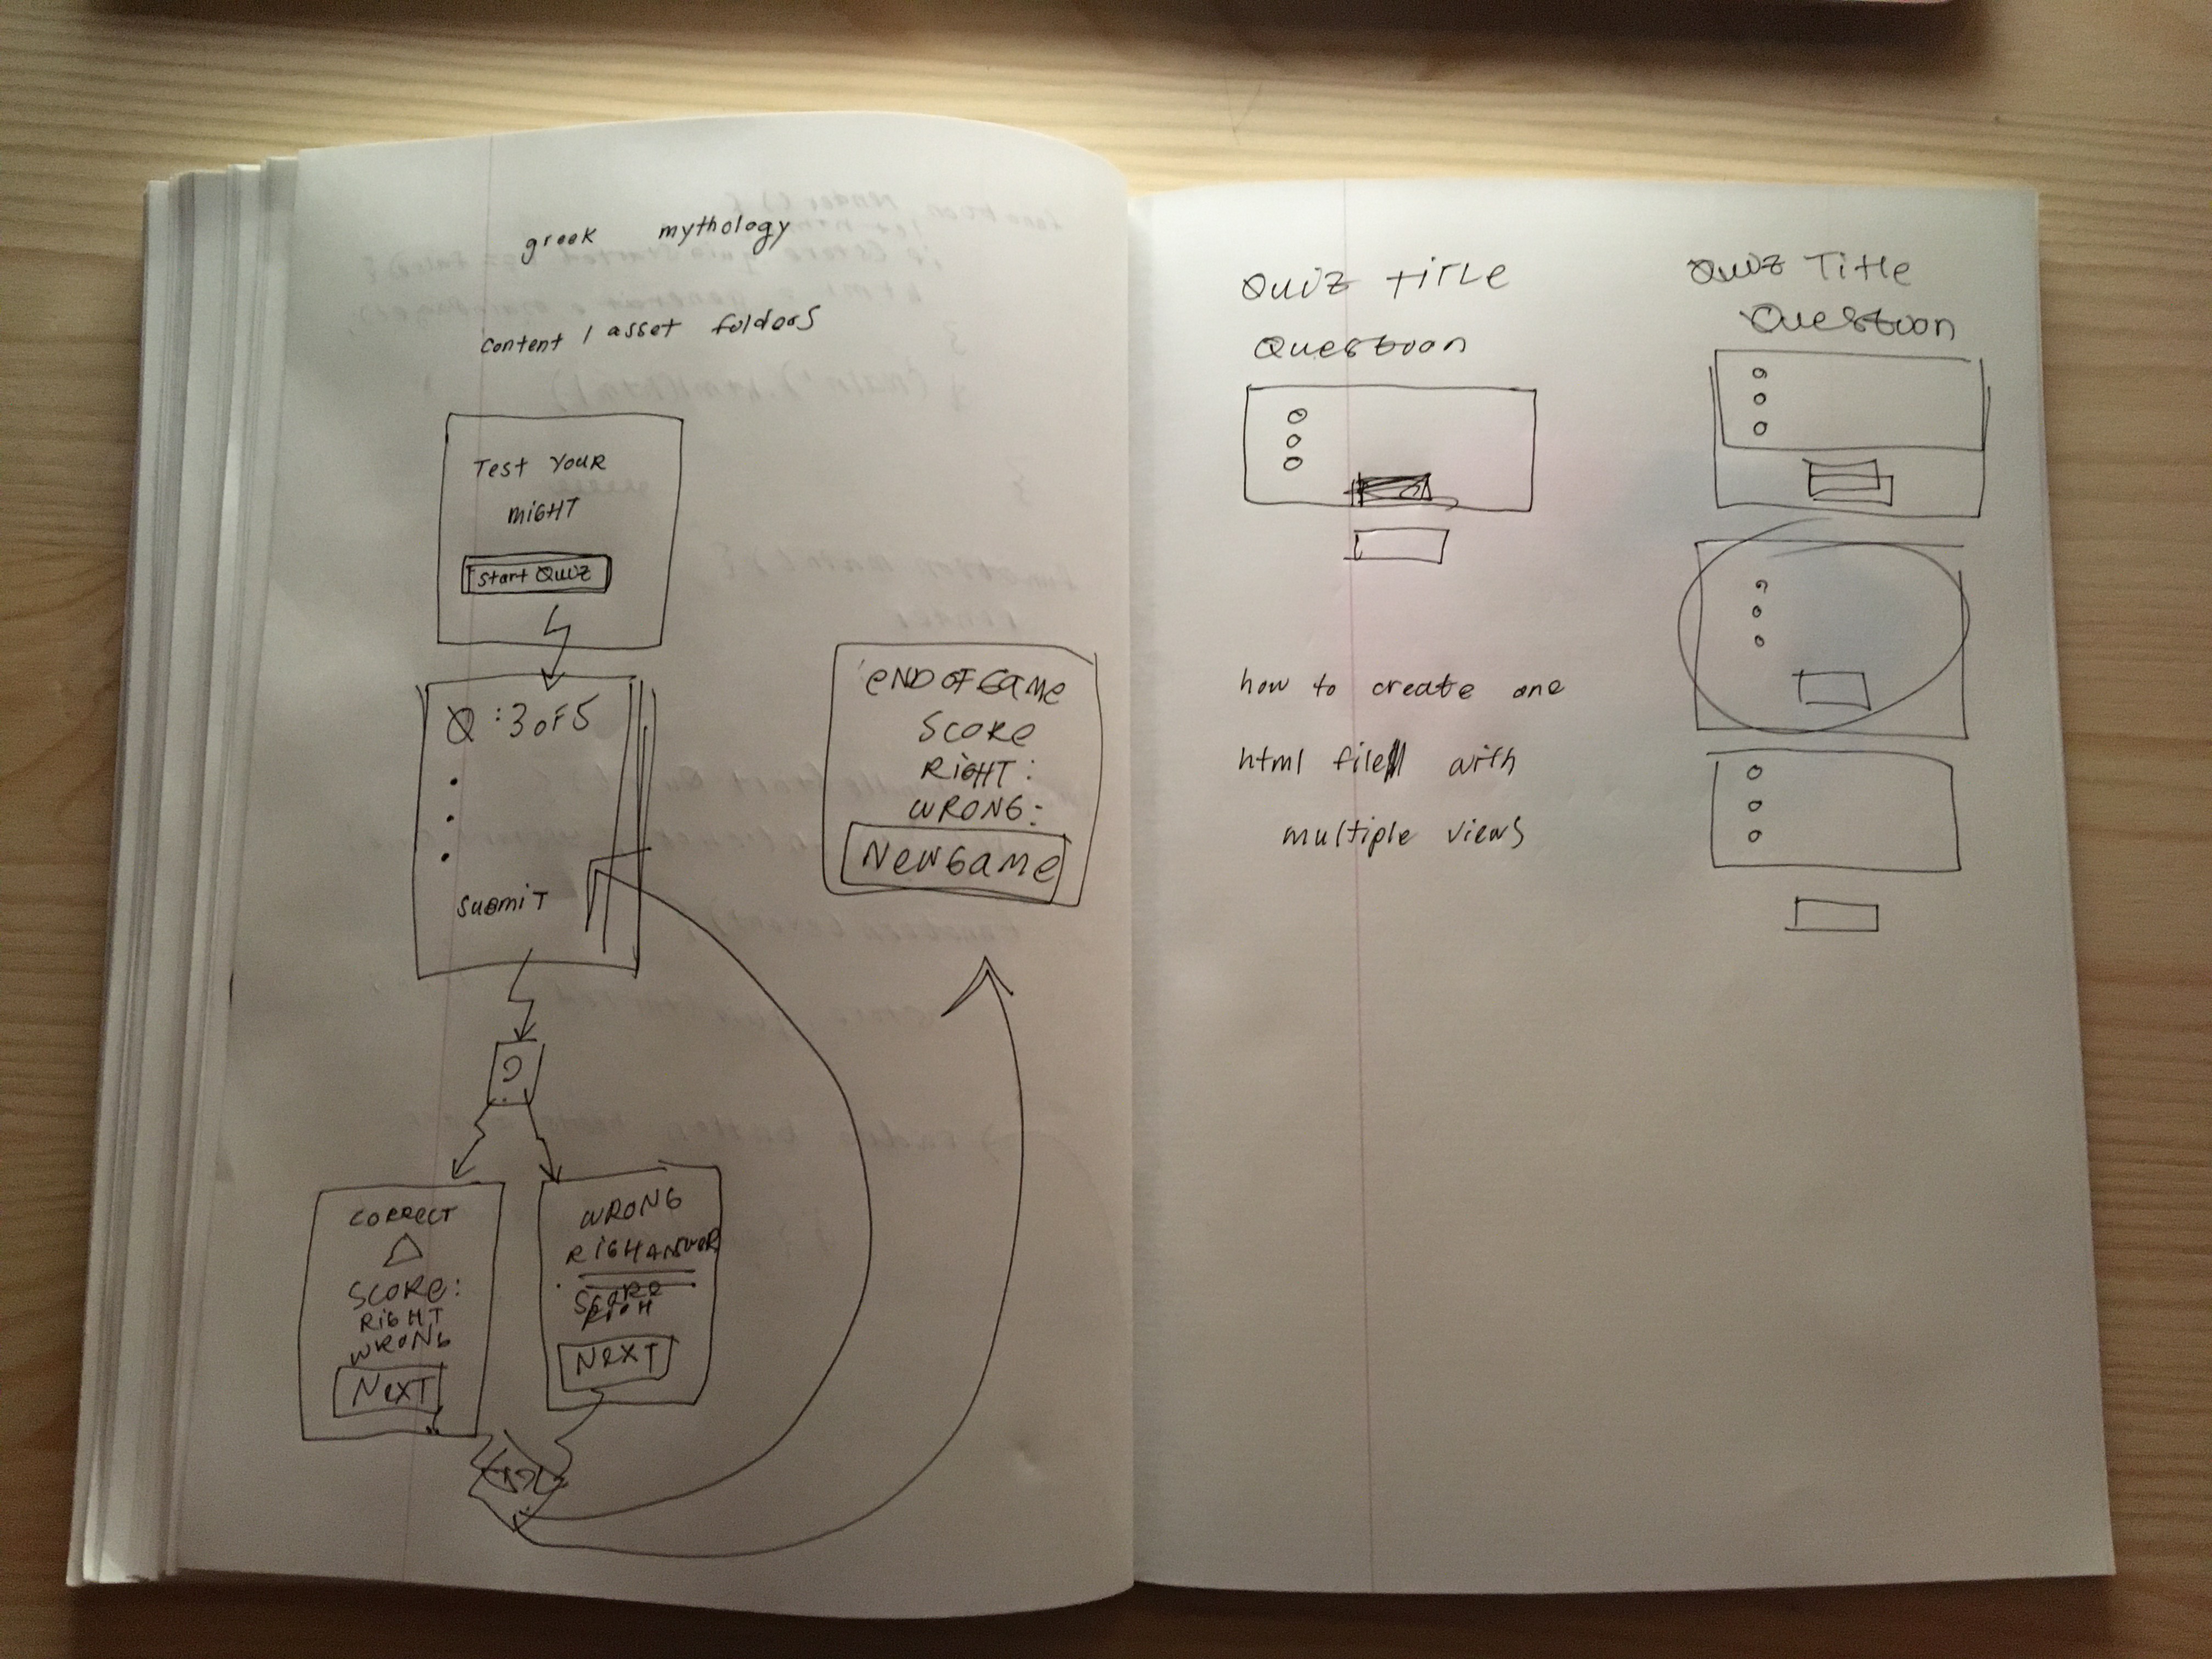 greek mythology
content / asset foldoors
Test Your
might
Start Quiz
Q: 3 of 5
submit
?
correct
Score:
Right
Wrong
Next
Wrong
Next
'end of Game
Score
Right:
Wrong:
New Game
Quiz title
Question
how to create one
html file with
multiple views
Quiz Title
Question